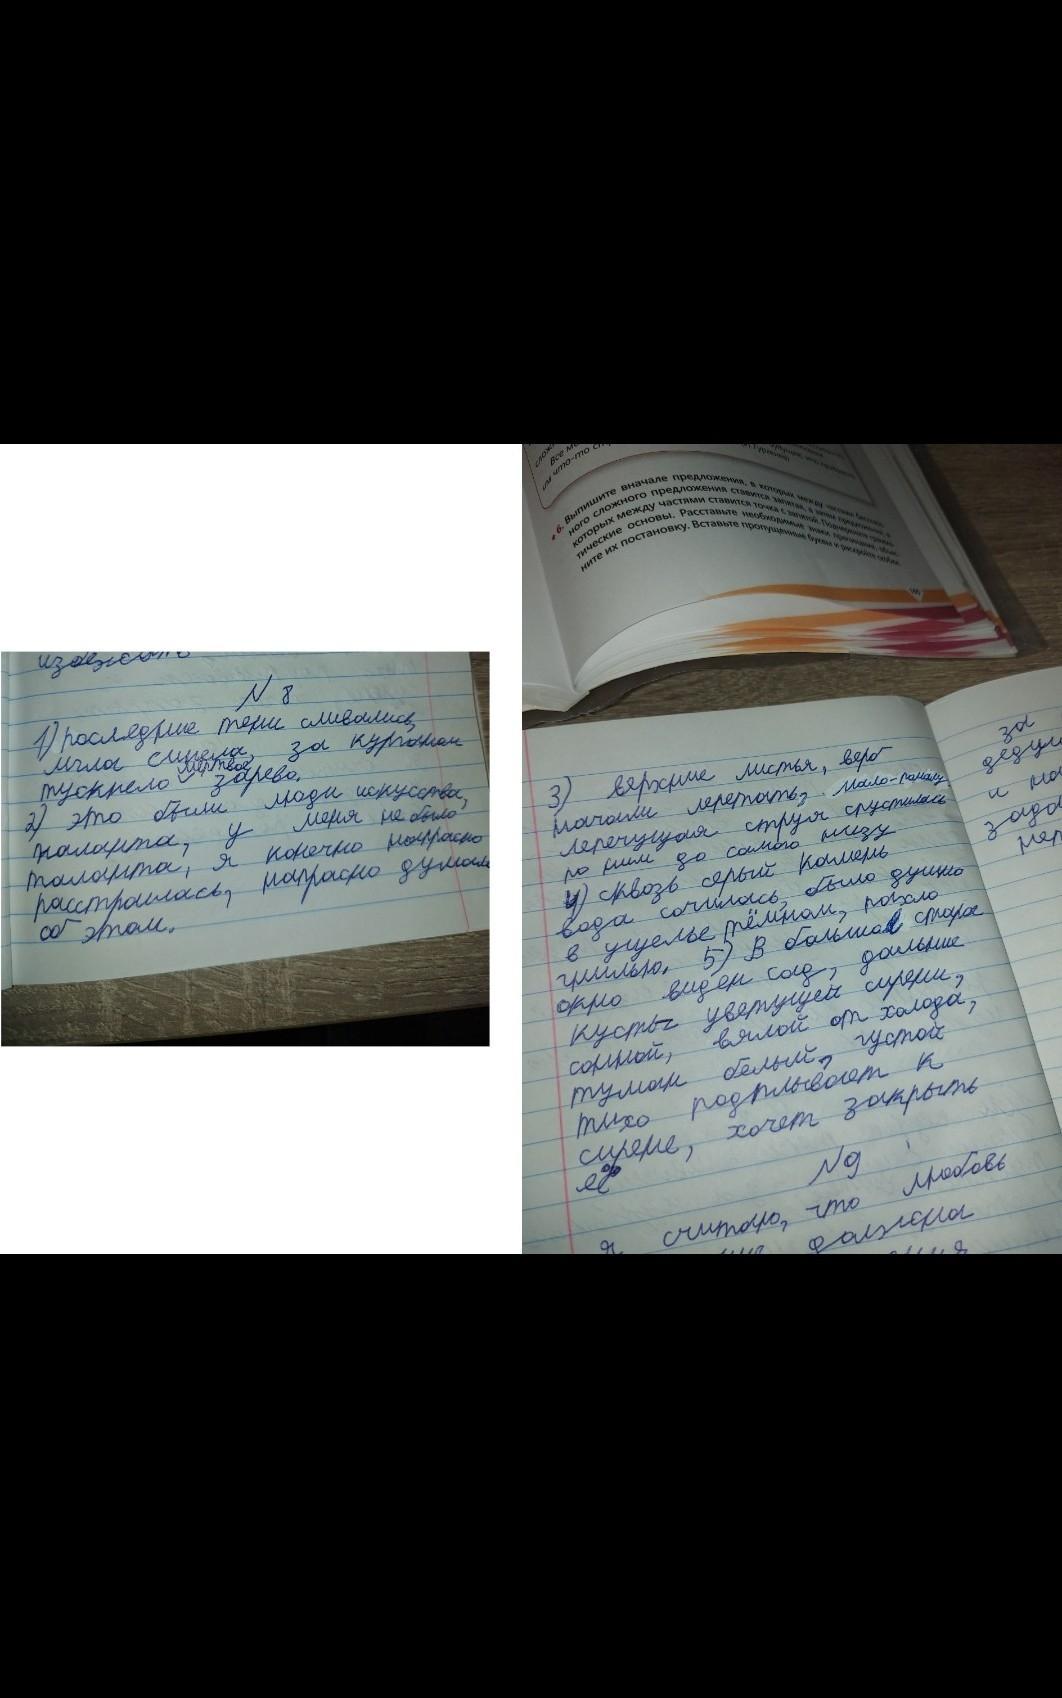 N 8
1) последние тени сливались,
мгла синела, за курганом
тускнело мертвое зарево.
2) это были люди искусства,
таланта, у меня не было
таланта, я конечно напрасно
расстроилась, напрасно думала
об этом.
6. Выпишите вначале предложения, в которых между частями бессоюз-
ного сложного предложения ставится запятая, а затем предложения, в
которых между частями ставится точка с запятой. Подчеркните грамма-
тические основы. Расставьте необходимые знаки препинания, объяс-
ните их постановку. Вставьте пропущенные буквы и раскройте скобки.
3) верхние листья, верб
начали лепетать, мало-помалу
лепечущая струя спустилась
по ним до самого низу
4) сквозь серый камень
вода сочилась, было душно
в ущелье тёмном, пахло
гнилью. 5) В большое старое
окно виден сад, дальше
кусты цветущей сирени,
сонной, вялой от холода,
туман белый, густой
тихо подплывает к
сирени, хочет закрыть
её
N9
я считаю, что любовь
должна
за
и на